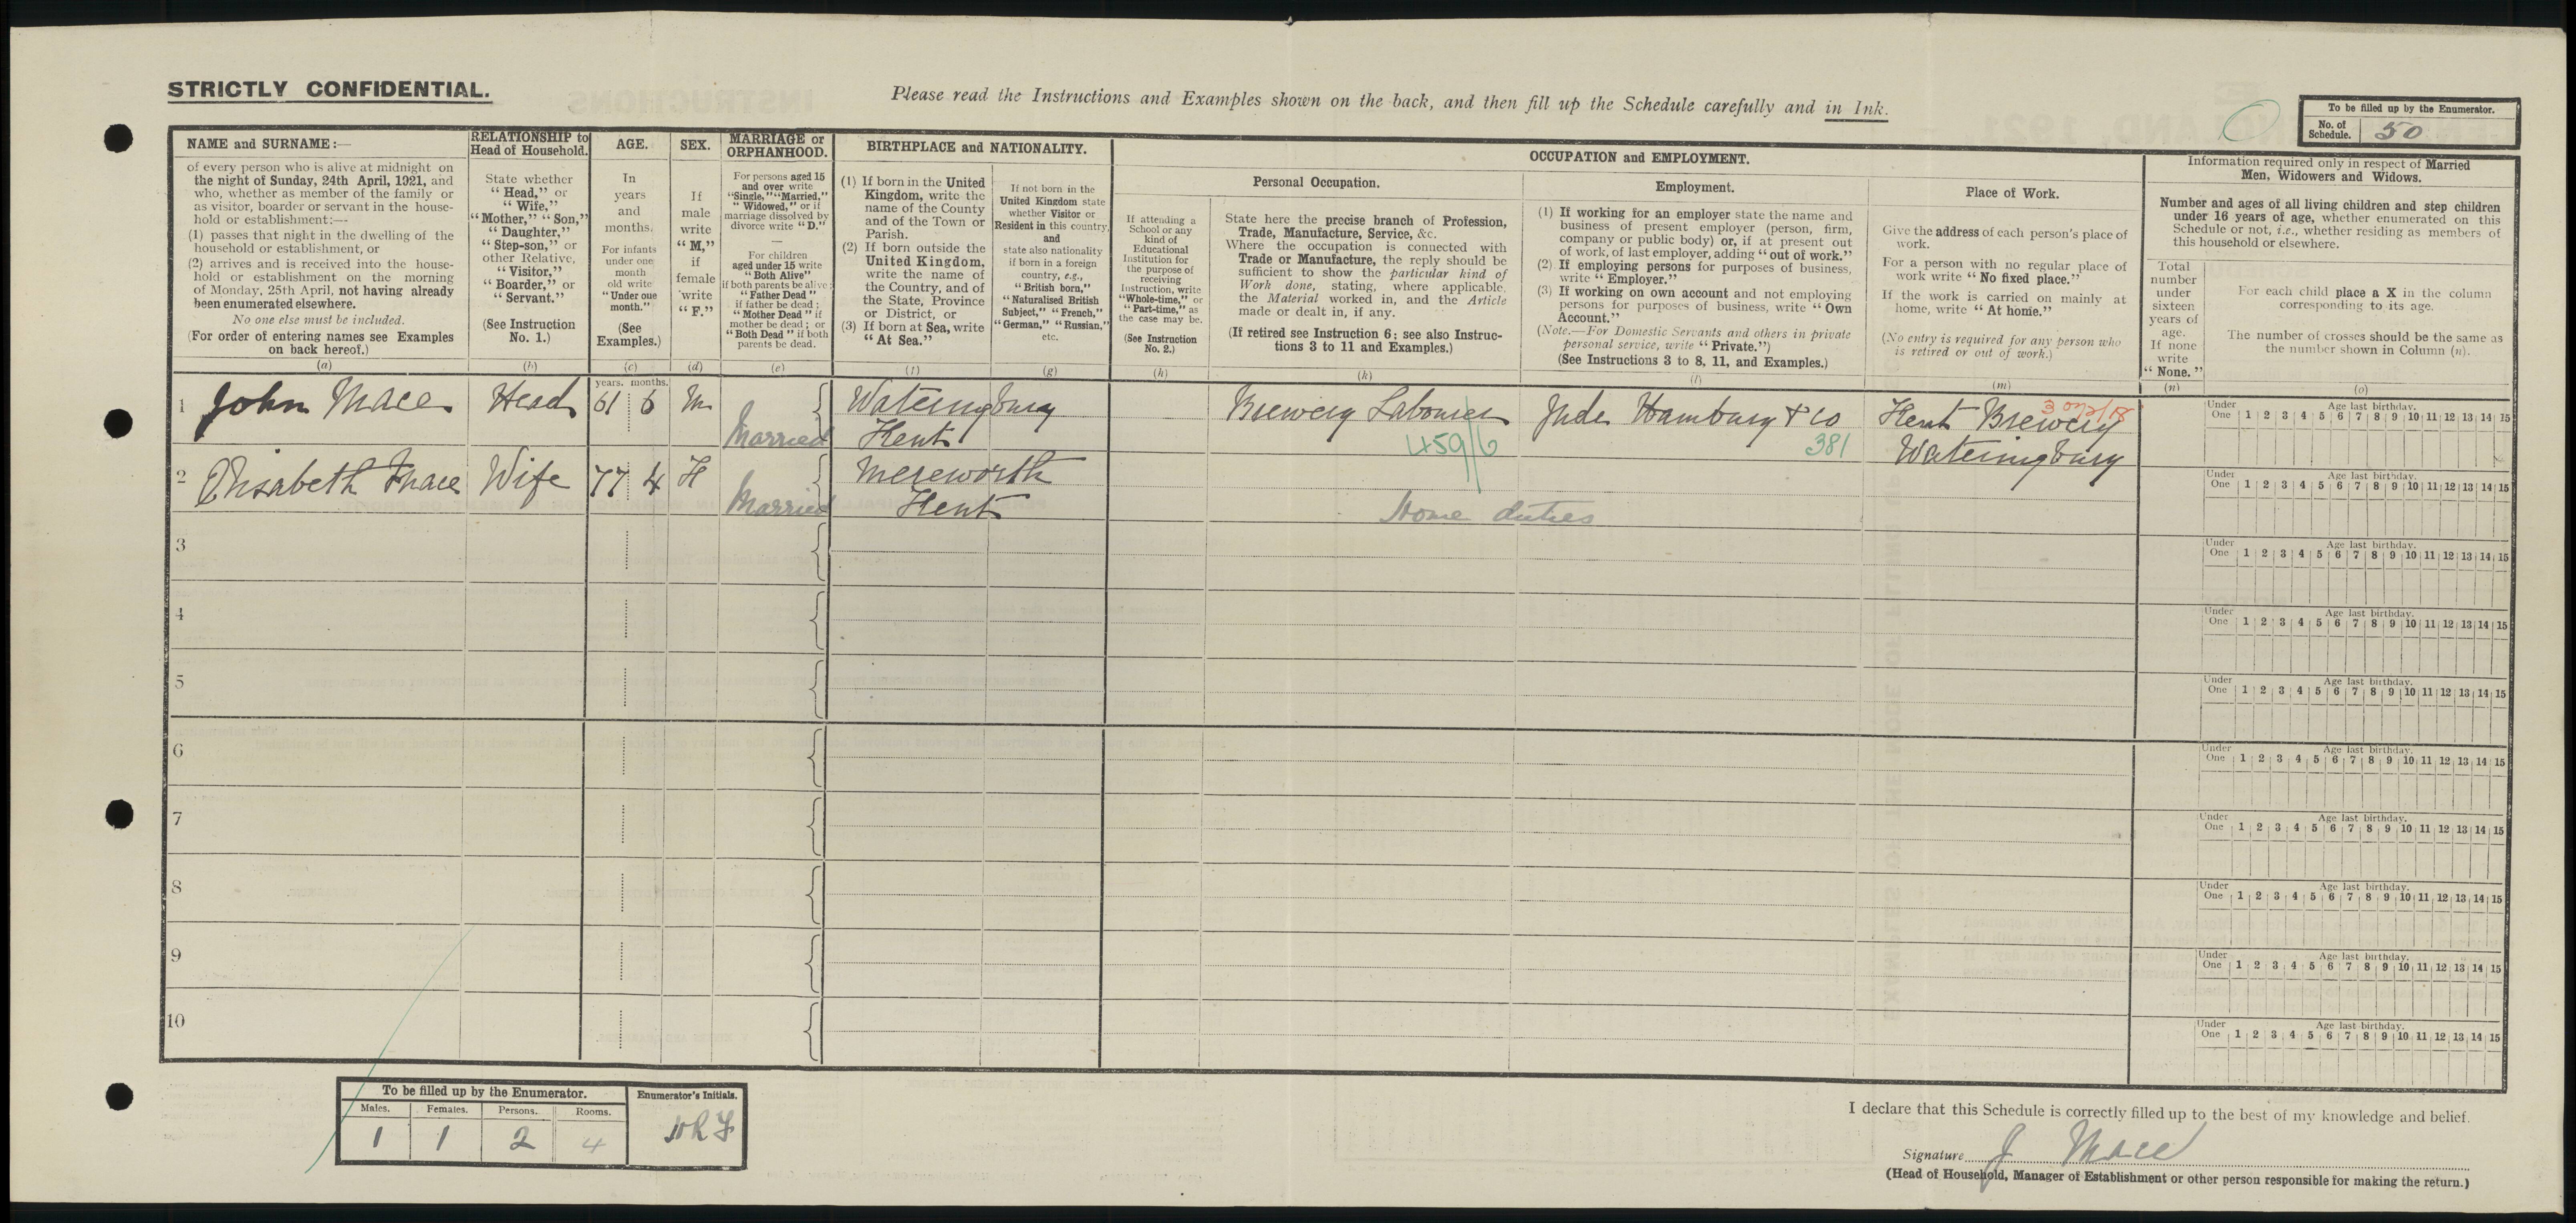 STRICTLY CONFIDENTIAL.
Please read the Instructions and Examples shown on the back, and then fill up the Schedule carefully and in Ink.
To be filled up by the Enumerator.
No. of Schedule. 50
NAME and SURNAME:—
of every person who is alive at midnight on
the night of Sunday, 24th April, 1921, and
who, whether as member of the family or
as visitor, boarder or servant in the house-
hold or establishment:—
(1) passes that night in the dwelling of the
household or establishment, or
(2) arrives and is received into the house-
hold or establishment on the morning
of Monday, 25th April, not having already
been enumerated elsewhere.
No one else must be included.
(For order of entering names see Examples
on back hereof.)
(a)
RELATIONSHIP to
Head of Household.
State whether
“Head,” or
“Wife,”
“Mother,” “Son,”
“Daughter,”
“Step-son,” or
other Relative,
“Visitor,”
“Boarder,” or
“Servant.”
(See Instruction
No. 1.)
(b)
AGE.
In
years
and
months.
For infants
under one
month
old write
“Under one
month.”
(See
Examples.)
(c)
SEX.
If
male
write
“M,”
if
female
write
“F.”
(d)
MARRIAGE or
ORPHANHOOD.
For persons aged 15
and over write
“Single,” “Married,”
“Widowed,” or if
marriage dissolved by
divorce write “D.”
—
For children
aged under 15 write
“Both Alive”
if both parents be alive;
“Father Dead”
if father be dead;
“Mother Dead” if
mother be dead; or
“Both Dead” if both
parents be dead.
(e)
BIRTHPLACE and NATIONALITY.
(1) If born in the United
Kingdom, write the
name of the County
and of the Town or
Parish.
(2) If born outside the
United Kingdom,
write the name of
the Country, and of
the State, Province
or District, or
(3) If born at Sea, write
“At Sea.”
(f)
If not born in the
United Kingdom state
whether Visitor or
Resident in this country,
and
state also nationality
if born in a foreign
country, e.g.,
“British born,”
“Naturalised British
Subject,” “French,”
“German,” “Russian,”
etc.
(g)
OCCUPATION and EMPLOYMENT.
If attending a
School or any
kind of
Educational
Institution for
the purpose of
receiving
Instruction, write
“Whole-time,” or
“Part-time,” as
the case may be.
(See Instruction
No. 2.)
(h)
Personal Occupation.
State here the precise branch of Profession,
Trade, Manufacture, Service, &c.
Where the occupation is connected with
Trade or Manufacture, the reply should be
sufficient to show the particular kind of
Work done, stating, where applicable,
the Material worked in, and the Article
made or dealt in, if any.
(If retired see Instruction 6: see also Instruc-
tions 3 to 11 and Examples.)
(k)
Employment.
(1) If working for an employer state the name and
business of present employer (person, firm,
company or public body) or, if at present out
of work, of last employer, adding “out of work.”
(2) If employing persons for purposes of business,
write “Employer.”
(3) If working on own account and not employing
persons for purposes of business, write “Own
Account.”
(Note.—For Domestic Servants and others in private
personal service, write “Private.”)
(See Instructions 3 to 8, 11, and Examples.)
(l)
Place of Work.
Give the address of each person's place of
work.
For a person with no regular place of
work write “No fixed place.”
If the work is carried on mainly at
home, write “At home.”
(No entry is required for any person who
is retired or out of work.)
(m)
Information required only in respect of Married
Men, Widowers and Widows.
Number and ages of all living children and step children
under 16 years of age, whether enumerated on this
Schedule or not, i.e., whether residing as members of
this household or elsewhere.
Total
number
under
sixteen
years of
age.
If none
write
“None.”
(n)
For each child place a X in the column
corresponding to its age.
The number of crosses should be the same as
the number shown in Column (n).
(o)
years. months.
1 John Mace Head 61 6 M Married Wateringbury Kent Brewery Labourer 459/6 Jude Hanbury & Co 381 Kent Brewery Wateringbury
Under One 1 2 3 4 5 6 7 8 9 10 11 12 13 14 15 Age last birthday.
2 Elisabeth Mace Wife 77 4 F Married Mereworth Kent Home duties
Under One 1 2 3 4 5 6 7 8 9 10 11 12 13 14 15 Age last birthday.
3
Under One 1 2 3 4 5 6 7 8 9 10 11 12 13 14 15 Age last birthday.
4
Under One 1 2 3 4 5 6 7 8 9 10 11 12 13 14 15 Age last birthday.
5
Under One 1 2 3 4 5 6 7 8 9 10 11 12 13 14 15 Age last birthday.
6
Under One 1 2 3 4 5 6 7 8 9 10 11 12 13 14 15 Age last birthday.
7
Under One 1 2 3 4 5 6 7 8 9 10 11 12 13 14 15 Age last birthday.
8
Under One 1 2 3 4 5 6 7 8 9 10 11 12 13 14 15 Age last birthday.
9
Under One 1 2 3 4 5 6 7 8 9 10 11 12 13 14 15 Age last birthday.
10
Under One 1 2 3 4 5 6 7 8 9 10 11 12 13 14 15 Age last birthday.
To be filled up by the Enumerator.
Males. Females. Persons. Rooms.
1 1 2 4
Enumerator's Initials.
I declare that this Schedule is correctly filled up to the best of my knowledge and belief.
Signature J Mace
(Head of Household, Manager of Establishment or other person responsible for making the return.)